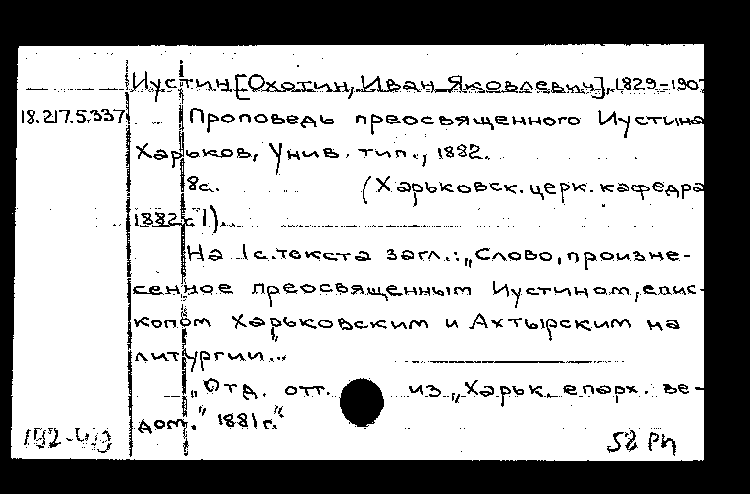 Иустин [Охотин, Иван Яковлевич], 1829-1907
18.217.5.337 Проповедь преосвященного Иустина
Харьков, Унив. тип., 1882.
8с. (Харьковск. церк. кафедра
1882 г 1).
На 1с. текста загл.: „Слово, произне-
сенное преосвященным Иустином, епис-
копом Харьковским и Ахтырским на
литургии..."
„Отд. отт. из „Харьк. епарх. ве-
дом." 1881г."
58 Рп